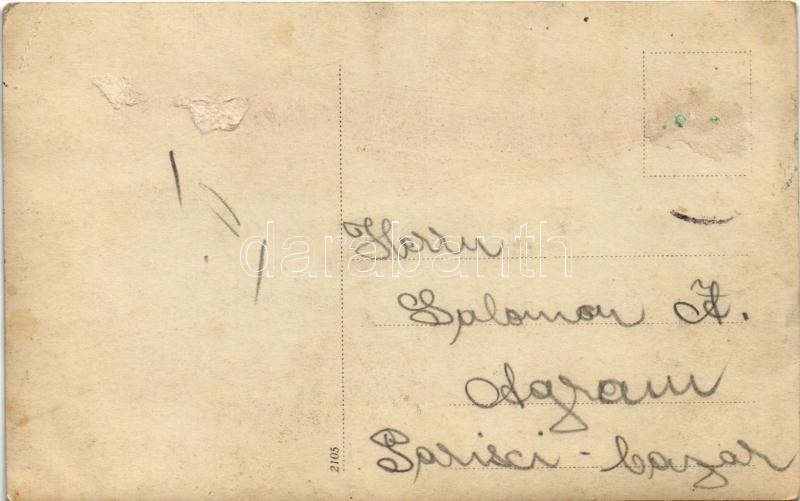 Herrn
Salomon A.
Agram
Parisci-bazar
2105
darabanth